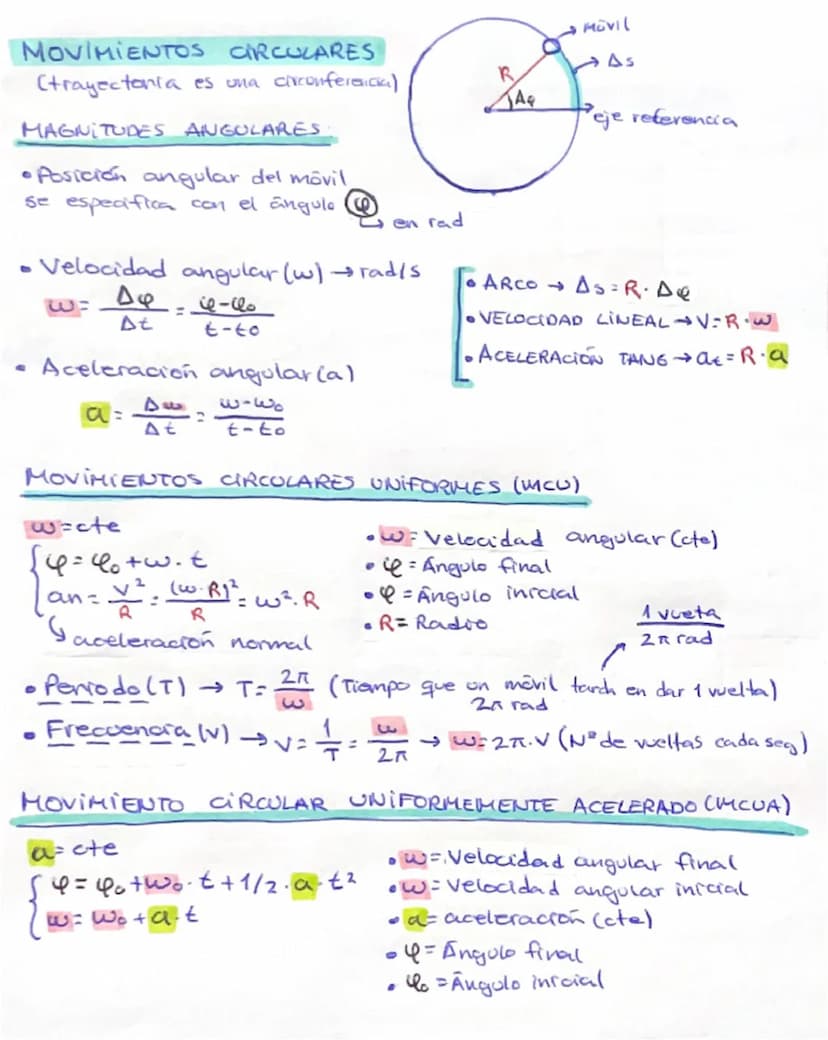 MOVIMIENTOS CIRCULARES
(trayectoria es una circunferencia)
Móvil
Δs
R
Δφ
eje referencia
MAGNITUDES ANGULARES
• Posición angular del móvil
se especifica con el ángulo φ
↳ en rad
• Velocidad angular (ω) → rad/s
ω = Δφ/Δt = φ-φ₀/t-t₀
• Aceleración angular (a)
a = Δω/Δt = ω-ω₀/t-t₀
• ARCO → Δs = R · Δφ
• VELOCIDAD LINEAL → V = R · ω
• ACELERACIÓN TANG → at = R · a
MOVIMIENTOS CIRCULARES UNIFORMES (MCU)
ω = cte
φ = φ₀ + ω · t
an = V²/R = (ω·R)²/R = ω² · R
↳ aceleración normal
• ω = Velocidad angular (cte)
• φ = Ángulo final
• φ = Ángulo inicial
• R = Radio
1 vuelta/2π rad
• Periodo (T) → T = 2π/ω (Tiempo que un móvil tarda en dar 1 vuelta)
2π rad
• Frecuencia (V) → V = 1/T = ω/2π → ω = 2π · V (Nº de vueltas cada seg)
MOVIMIENTO CIRCULAR UNIFORMEMENTE ACELERADO (MCUA)
a = cte
φ = φ₀ + ω₀ · t + 1/2 · a · t²
ω = ω₀ + a · t
• ω = Velocidad angular final
• ω = Velocidad angular inicial
• a = aceleración (cte)
• φ = Ángulo final
• φ₀ = Ángulo inicial